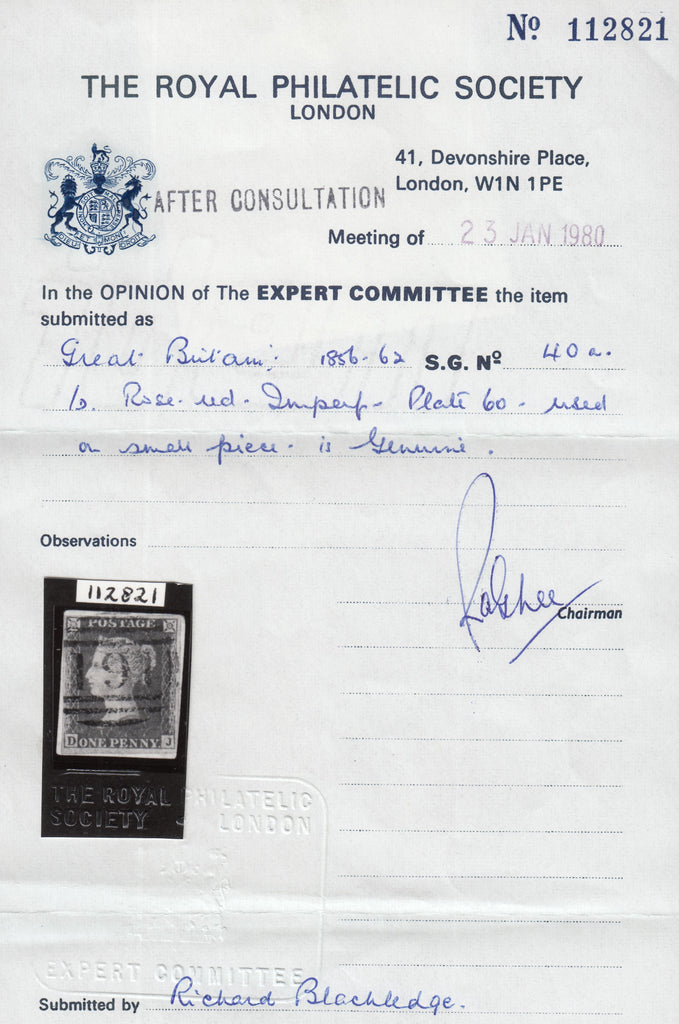 Nº 112821
THE ROYAL PHILATELIC SOCIETY
LONDON
41, Devonshire Place,
London, W1N 1PE
AFTER CONSULTATION
Meeting of 23 JAN 1980
In the OPINION of The EXPERT COMMITTEE the item
submitted as
Great Britain: 1856-62 S.G. Nº 40a.
1d. Rose-red - Imperf - Plate 60 - used
on small piece - is Genuine.
Observations
Chairman
112821
POSTAGE
191
D ONE PENNY J
THE ROYAL PHILATELIC
SOCIETY LONDON
EXPERT COMMITTEE
Submitted by Richard Blackledge.